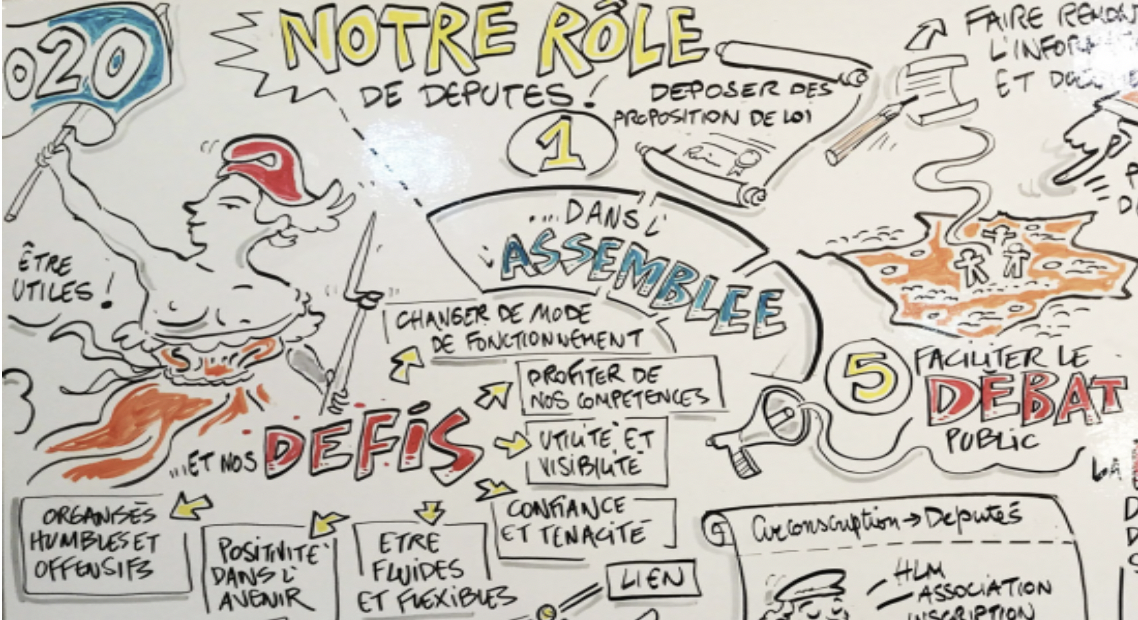 020
NOTRE RÔLE
DE DEPUTES !
1
DEPOSER DES
PROPOSITION DE LOI
FAIRE
L'INFORMATION
ET
...DANS L'
ASSEMBLEE
ÊTRE
UTILES !
...ET NOS DEFIS
CHANGER DE MODE
DE FONCTIONNEMENT
PROFITER DE
NOS COMPETENCES
UTILITE ET
VISIBILITE
CONFIANCE
ET TENACITE
ETRE
FLUIDES
ET FLEXIBLES
POSITIVITE
DANS L'
AVENIR
ORGANISES
HUMBLES ET
OFFENSIFS
LIEN
5
FACILITER LE
DEBAT
PUBLIC
LA
Circonscription → Deputés
HLM
ASSOCIATION
INSCRIPTION